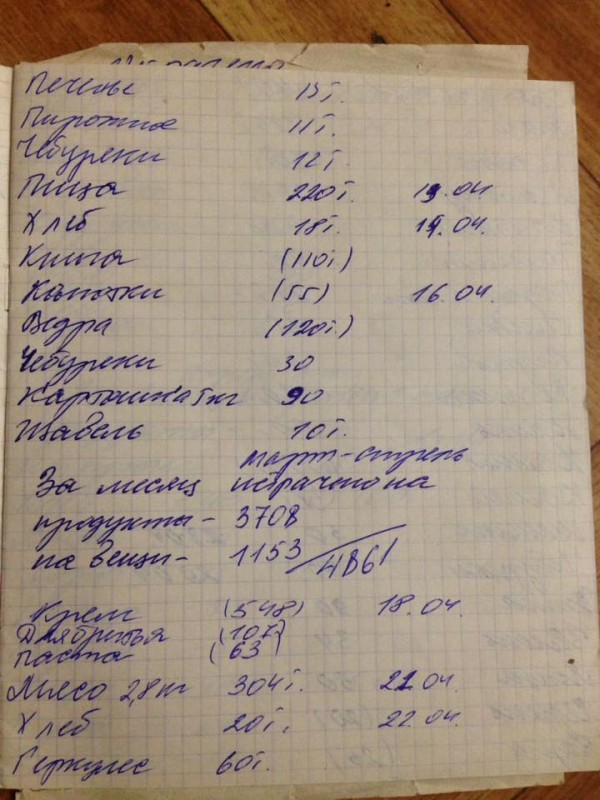 Печенье 15г.
Пирожное 11г.
Чебуреки 12г.
Пицца 220г. 19.04.
Хлеб 18г. 19.04.
Книга (110г)
Колготки (55) 16.04.
Ведра (120г)
Чебуреки 30
Картошка 90
Щавель 10г.
март-апрель
За месяц потрачено на
продукты - 3708
на вещи - 1153 / 4861
Крем (548) 18.04.
Для бритья (107)
паста (63)
Мясо 2,8кг 304г. 21.04.
Хлеб 20г. 22.04.
Геркулес 60г.